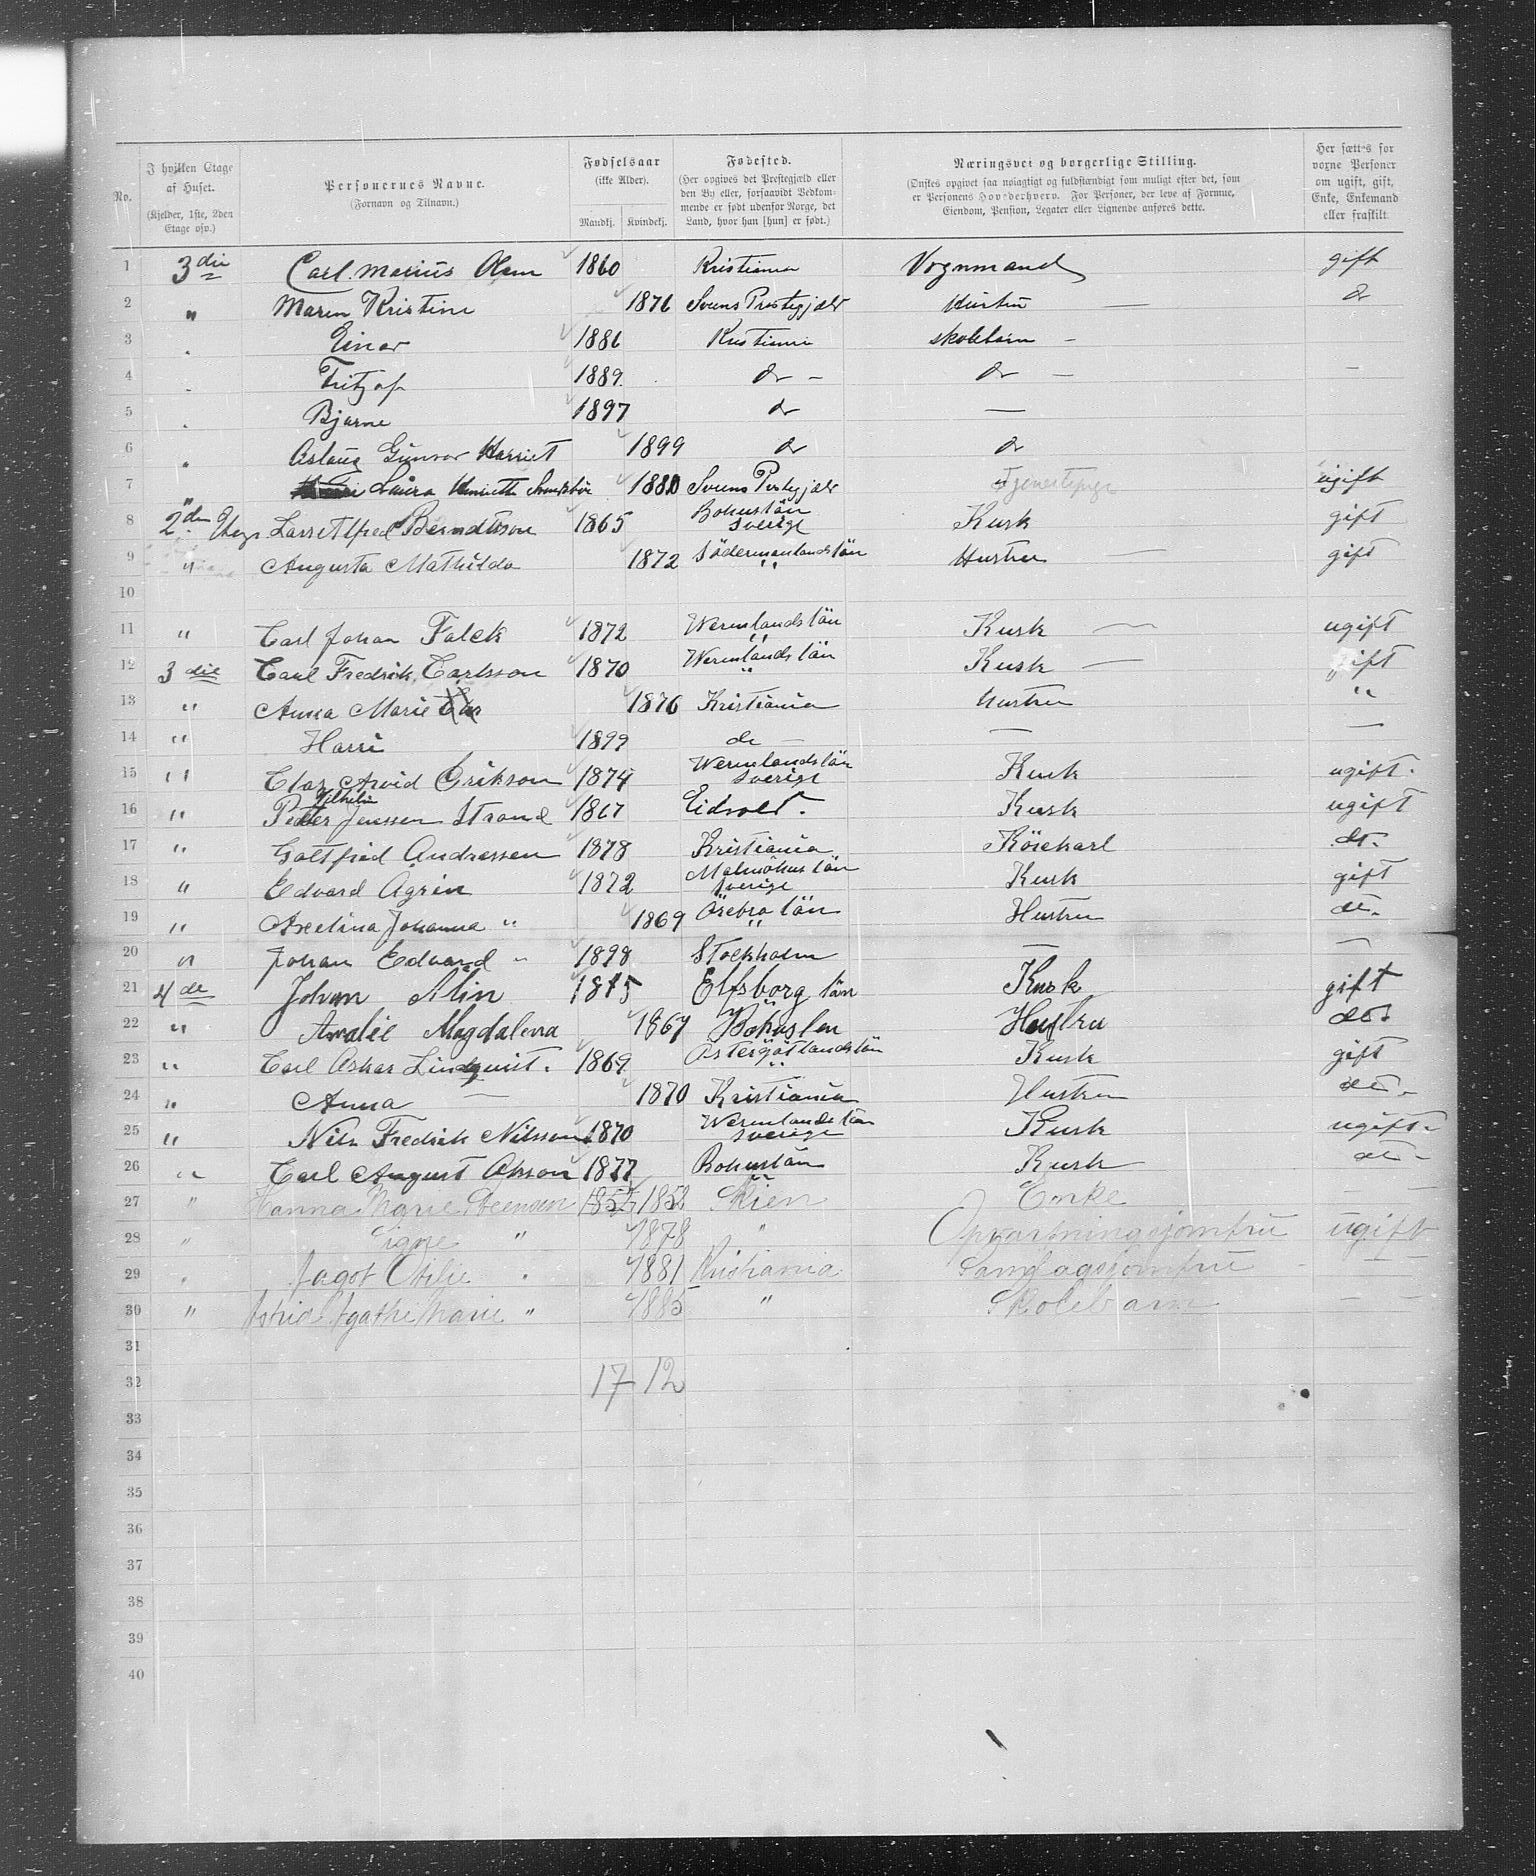 No. | I hvilken Etage af Huset. (Kjelder, 1ste, 2den Etage osv.) | Personernes Navne. (Fornavn og Tilnavn.) | Fødselsaar (ikke Alder). Mandkj. Kvindekj. | Fødested. (Her opgives det Prestegjæld eller den By eller, forsaavidt Vedkommende er født udenfor Norge, det Land, hvor han [hun] er født.) | Næringsvei og borgerlige Stilling. (Ønskes opgivet saa nøiagtigt og fuldstændigt som muligt efter det, som er Personens Hovederhverv. For Personer, der leve af Formue, Eiendom, Pension, Legater eller Lignende anføres dette. | Her sættes for voxne Personer om ugift, gift, Enke, Enkemand eller fraskilt.
1 3die Carl Marius Olsen 1860 Kristiania Vognmand gift
2 " Maren Kristine 1876 Svens Prestegjæld Hustru do
3 Einar 1886 Kristiania skolebarn -
4 Fritjof 1889. do - do - -
5 Bjarne 1897 do —
6 " Aslaug Gunvor Harriet 1899 do do
7 " Laura 1880 Svens Prestegjæld Tjenestepige ugift
8 2den Etage Lars Alfred Berndtsson 1865 Bohuslän Sverige Kusk gift
9 " Augusta Mathilda 1872 Södermanlands län " Hustru gift
10
11 " Carl Johan Falck 1872 Wermlands län " Kusk — ugift
12 3die Carl Fredrik Carlsson 1870 Wermlands län " Kusk — gift
13 " Anna Marie 1876 Kristiania Hustru "
14 " Harri 1899 do — — —
15 " Claz Arvid Erikson 1874 Wermlands län Sverige Kusk ugift.
16 " Peder Vilhelm Jenssen Strand 1867 Eidsvold. Kusk ugift
17 " Gottfried Andressen 1878 Kristiania Körekarl do.
18 " Edvard Agrin 1872 Malmöhus län Sverige Kusk gift
19 " Axelina Johanna " 1869 Örebro län " Hustru do.
20 " Johan Edvard " 1898 Stockholm — —
21 4de Johan Alin 1875 Elfsborg län Kusk gift
22 " Amalie Magdalena 1867 Bohuslen Hustru do.
23 " Carl Oskar Lindqvist. 1869 Östergötlands län " Kusk gift
24 " Anna — 1870 Kristiania Hustru do.
25 " Nils Fredrik Nilsson 1870 Wermlands län Sverige Kusk ugift.
26 " Carl August Olsson 1877 Bohuslän " Kusk do -
27 " Hanna Marie 1852 1852 Skien Enke — —
28 " Signe " 1878 " Opvartningsjomfru ugift
29 " Otilie " 1881 Kristiania Samlagsjomfru - —
30 " Astrid Agathe Marie " 1885 " Skolebarn — —
31
32 17 12
33
34
35
36
37
38
39
40